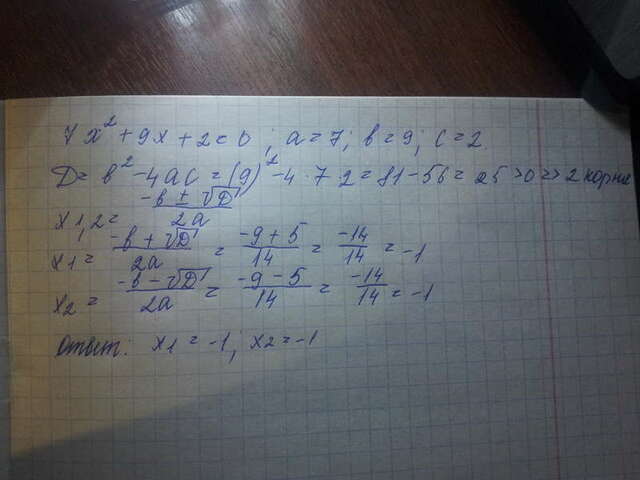 7x² + 9x + 2 = 0; a = 7; b = 9; c = 2
D = b² - 4ac = (9)² - 4 · 7 · 2 = 81 - 56 = 25 > 0 => 2 корня
x1,2 = (-b ± √D)/2a
x1 = (-b + √D)/2a = (-9 + 5)/14 = -14/14 = -1
x2 = (-b - √D)/2a = (-9 - 5)/14 = -14/14 = -1
Ответ: x1 = -1; x2 = -1